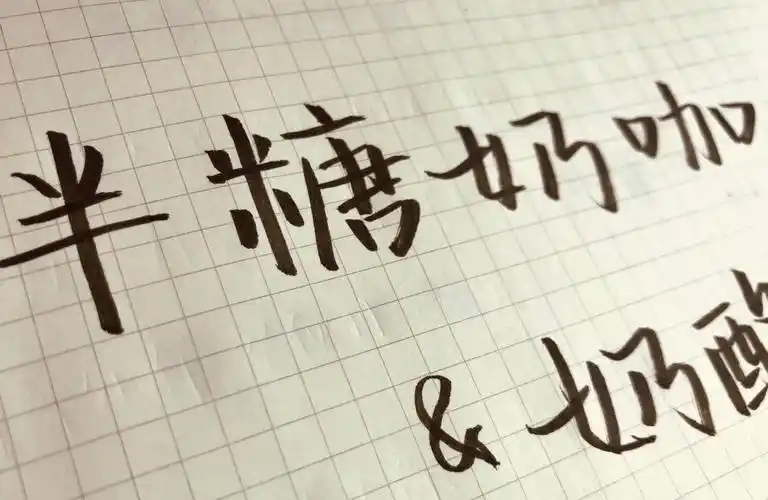 半糖奶咖
& 奶